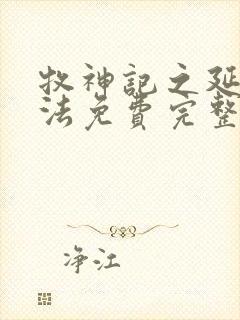 牧神记之延
法免费完整
净江